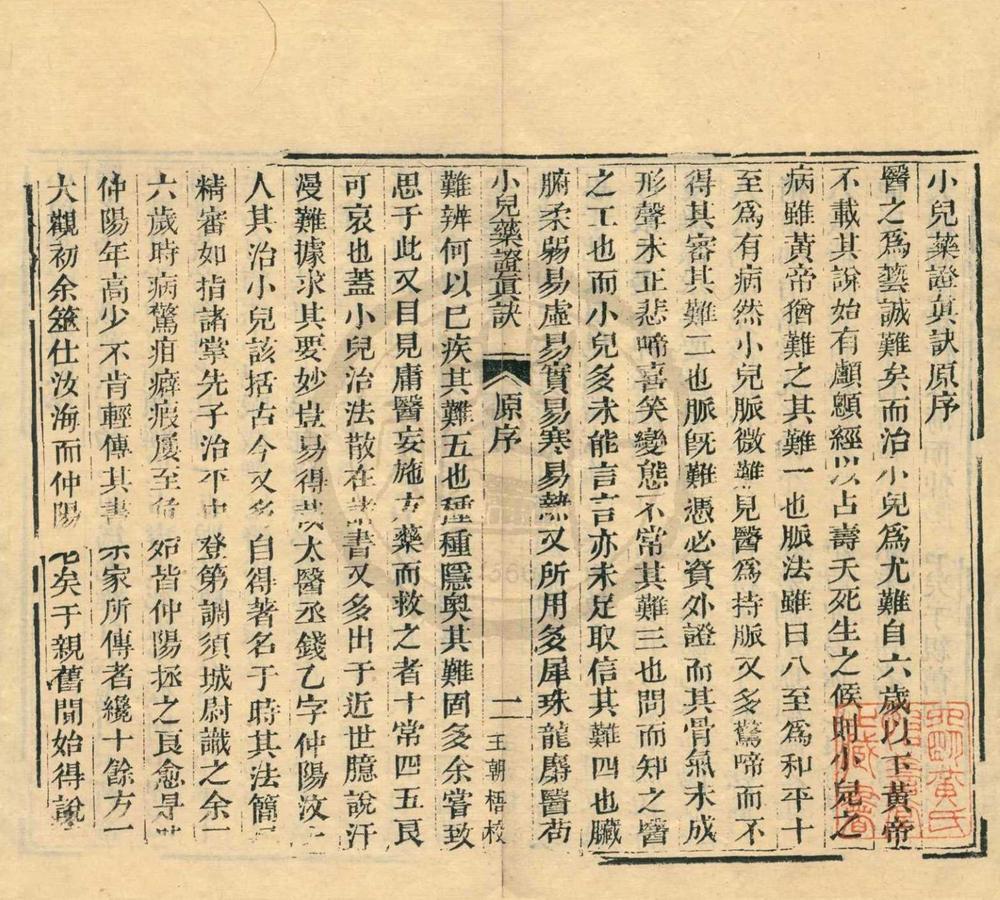 小兒藥證眞訣原序
醫之爲藝誠難矣而治小兒爲尤難自六歲以下黃帝
不載其說始有顱顖經以占壽夭死生之候則小兒之
病雖黃帝猶難之其難一也脈法雖曰八至爲和平十
至爲有病然小兒脈微難見醫爲持脈又多驚啼而不
得其審其難二也脈旣難憑必資外證而其骨氣未成
形聲未正悲啼喜笑變態不常其難三也問而知之醫
之工也而小兒多未能言言亦未足取信其難四也臟
腑柔弱易虛易實易寒易熱又所用多犀珠龍麝醫苟
小兒藥證眞訣 原序 一 王朝梧校
難辨何以已疾其難五也種種隱奧其難固多余嘗致
思于此又目見庸醫妄施方藥而救之者十常四五良
可哀也蓋小兒治法散在諸書又多出于近世臆說汗
漫難據求其要妙豈易得哉太醫丞錢乙字仲陽汶上
人其治小兒該括古今又多自得著名于時其法簡
精審如指諸掌先子治平中登第調須城尉識之余
六歲時病驚疳癖瘕屢至危殆皆仲陽拯之良愈是時
仲陽年高少不肯輕傳其書余家所傳者纔十餘方
大觀初余筮仕汝海而仲陽老矣于親舊間始得說